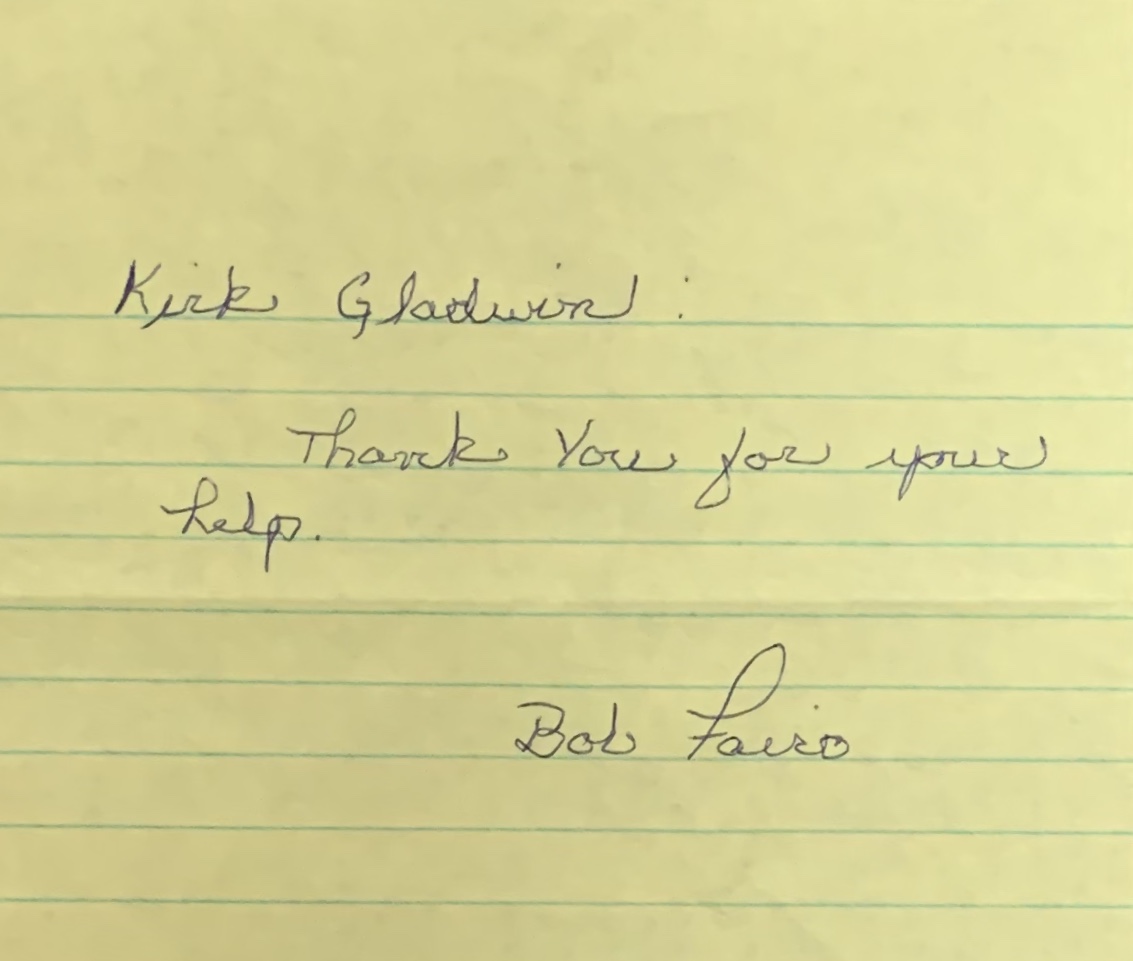 Kirk Gladwin:
Thank You for your
help.
Bob Fairo